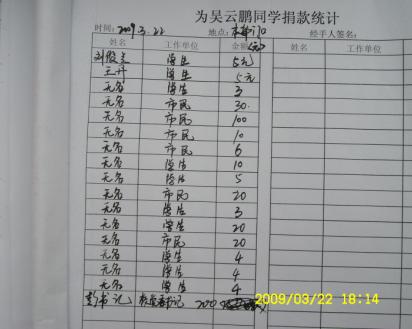 为吴云鹏同学捐款统计
时间: 2009.3.22 地点: 本部门口 经手人签名:
姓名 工作单位 金额(元) 姓名
刘俊 学生 5元
王丹 学生 5元
无名 学生 3
无名 市民 30
无名 市民 100
无名 市民 10
无名 市民 6
无名 学生 10
无名 学生 5
无名 市民 20
无名 学生 3
无名 学生 20
无名 市民 20
无名 学生 4
无名 学生 4
无名 学生 4
彭书记 书记 200
2009/03/22 18:14